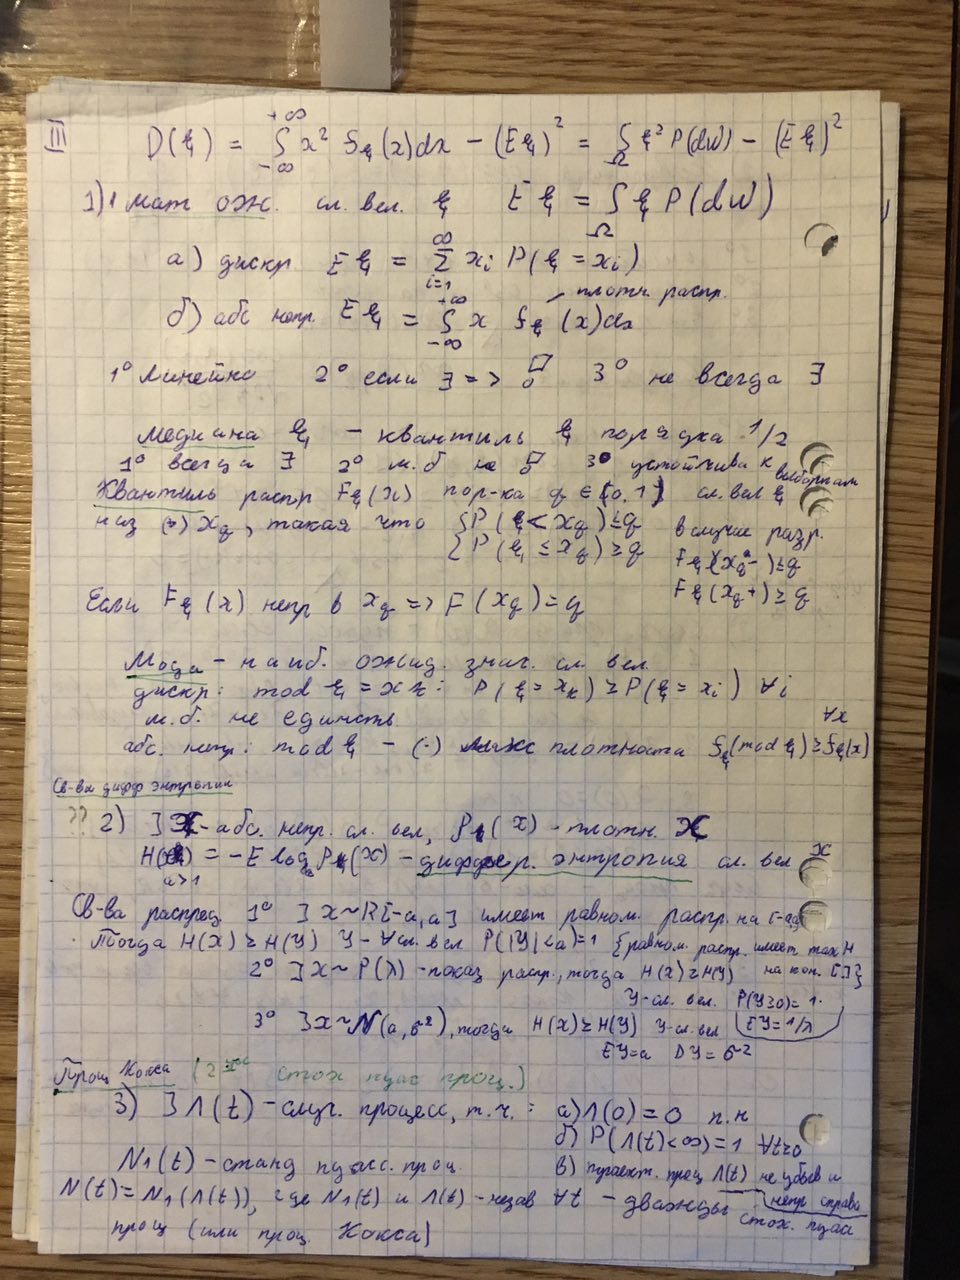 III D(ξ) = ∫_{-∞}^{+∞} x² f_ξ(x)dx − (Eξ)² = ∫_Ω ξ² P(dω) − (Eξ)²
1) мат ож. сл. вел. ξ Eξ = ∫_Ω ξ P(dω)
а) дискр Eξ = Σ_{i=1}^{∞} x_i P(ξ = x_i)
плотн. распр.
б) абс непр. Eξ = ∫_{-∞}^{+∞} x f_ξ(x)dx
1° линейно 2° если ∃ => ! 3° не всегда ∃
Медиана ξ − квантиль ξ порядка 1/2
1° всегда ∃ 2° м.б не ! 3° устойчива к выборкам
Квантиль распр F_ξ(x) пор-ка q ∈ (0,1) сл. вел ξ
наз (·) x_q, такая что { P(ξ < x_q) ≤ q в случае разр.
{ P(ξ ≤ x_q) ≥ q F_ξ(x_q−) ≤ q
F_ξ(x_q+) ≥ q
Если F_ξ(x) непр в x_q => F(x_q) = q
Мода − наиб. ожид. знач. сл. вел.
дискр: mod ξ = x_k: P(ξ = x_k) ≥ P(ξ = x_i) ∀i
м.б. не единств
абс. непр: mod ξ − (·) макс плотности f_ξ(mod ξ) ≥ f_ξ(x) ∀x
Св-ва дифф энтропии
?? 2) ∃ X − абс. непр. сл. вел, p(x) − плотн. X
H(x) = −E log_a p(x) − диффер. энтропия сл. вел X
a>1
Св-ва распред 1° ∃ x~R[-a,a] имеет равном. распр. на [-a,a]
Тогда H(x) ≥ H(Y) Y − ∀ сл. вел P(|Y|<a)=1 {равном. распр. имеет max H
2° ∃ x~P(λ) − показ распр., тогда H(x) ≥ H(Y) на кон. [·]}
Y-сл. вел. P(Y≥0)=1.
3° ∃ x~N(a,σ²), тогда H(x) ≥ H(Y) Y-сл. вел EY=1/λ
EY=a DY=σ²
Проц Кокса (2ды стох пуас проц.)
3) ∃ Λ(t) − случ. процесс, т.ч.: а) Λ(0) = 0 п.н
б) P(Λ(t)<∞)=1 ∀t≥0
N₁(t) − станд пуасс. проц. в) траект. проц Λ(t) не убыв и
непр справа
N(t)=N₁(Λ(t)), где N₁(t) и Λ(t) − незав ∀t − дважды стох. пуас
проц (или проц. Кокса)